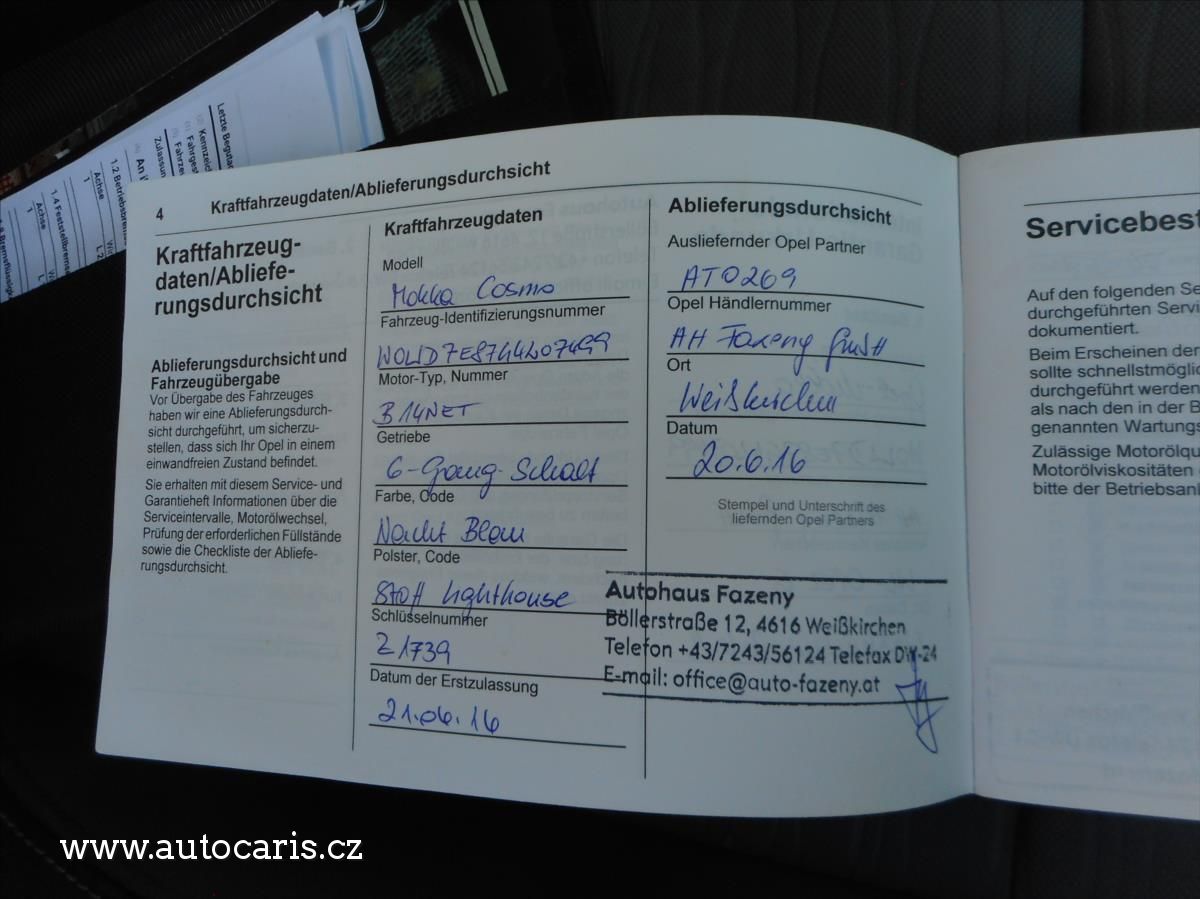 4 Kraftfahrzeugdaten/Ablieferungsdurchsicht
Kraftfahrzeug-
daten/Abliefe-
rungsdurchsicht
Ablieferungsdurchsicht und
Fahrzeugübergabe
Vor Übergabe des Fahrzeuges
haben wir eine Ablieferungsdurch-
sicht durchgeführt, um sicherzu-
stellen, dass sich Ihr Opel in einem
einwandfreien Zustand befindet.
Sie erhalten mit diesem Service- und
Garantieheft Informationen über die
Serviceintervalle, Motorölwechsel,
Prüfung der erforderlichen Füllstände
sowie die Checkliste der Abliefe-
rungsdurchsicht.
Kraftfahrzeugdaten
Modell
Mokka Cosmo
Fahrzeug-Identifizierungsnummer
Motor-Typ, Nummer
B14NET
Getriebe
6-Gang-Schalt
Farbe, Code
Nacht Blau
Polster, Code
Stoff Lighthouse
Schlüsselnummer
Z1739
Datum der Erstzulassung
21.06.16
Ablieferungsdurchsicht
Ausliefernder Opel Partner
AT0269
Opel Händlernummer
AH Fazeny GmbH
Ort
Weißkirchen
Datum
20.6.16
Stempel und Unterschrift des
liefernden Opel Partners
Autohaus Fazeny
Böllerstraße 12, 4616 Weißkirchen
Telefon +43/7243/56124 Telefax DW-24
E-mail: office@auto-fazeny.at
Servicebest
Auf den folgenden Se
durchgeführten Servi
dokumentiert.
Beim Erscheinen der
sollte schnellstmöglic
durchgeführt werden
als nach den in der B
genannten Wartungs
Zulässige Motorölqu
Motorölviskositäten
bitte der Betriebsanl
Letzte Begutac
Kennzei
Fahrgest
Fahrze
Zulassun
1.2 Betriebsbrem
Achse
1
1.4 Feststellbremse
Achse
1
www.autocaris.cz